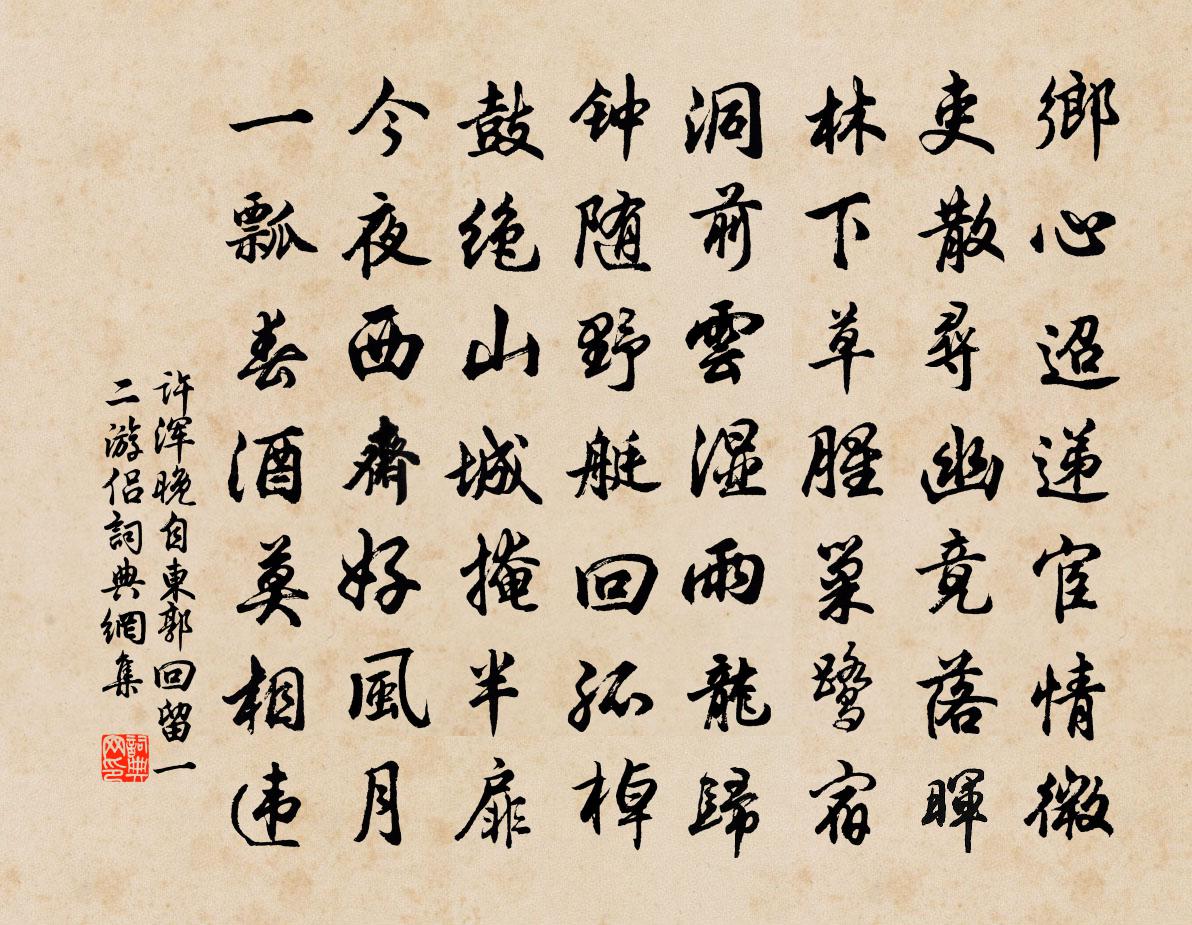 鄉心迢递宦情微
吏散尋幽竟落暉
林下草腥巢鷺宿
洞前雲湿雨龍歸
钟随野艇回孤棹
鼓绝山城掩半扉
今夜西齋好風月
一瓢春酒莫相违
許浑晚自東郭回留一
二游侣詞典網集
詞典
网印